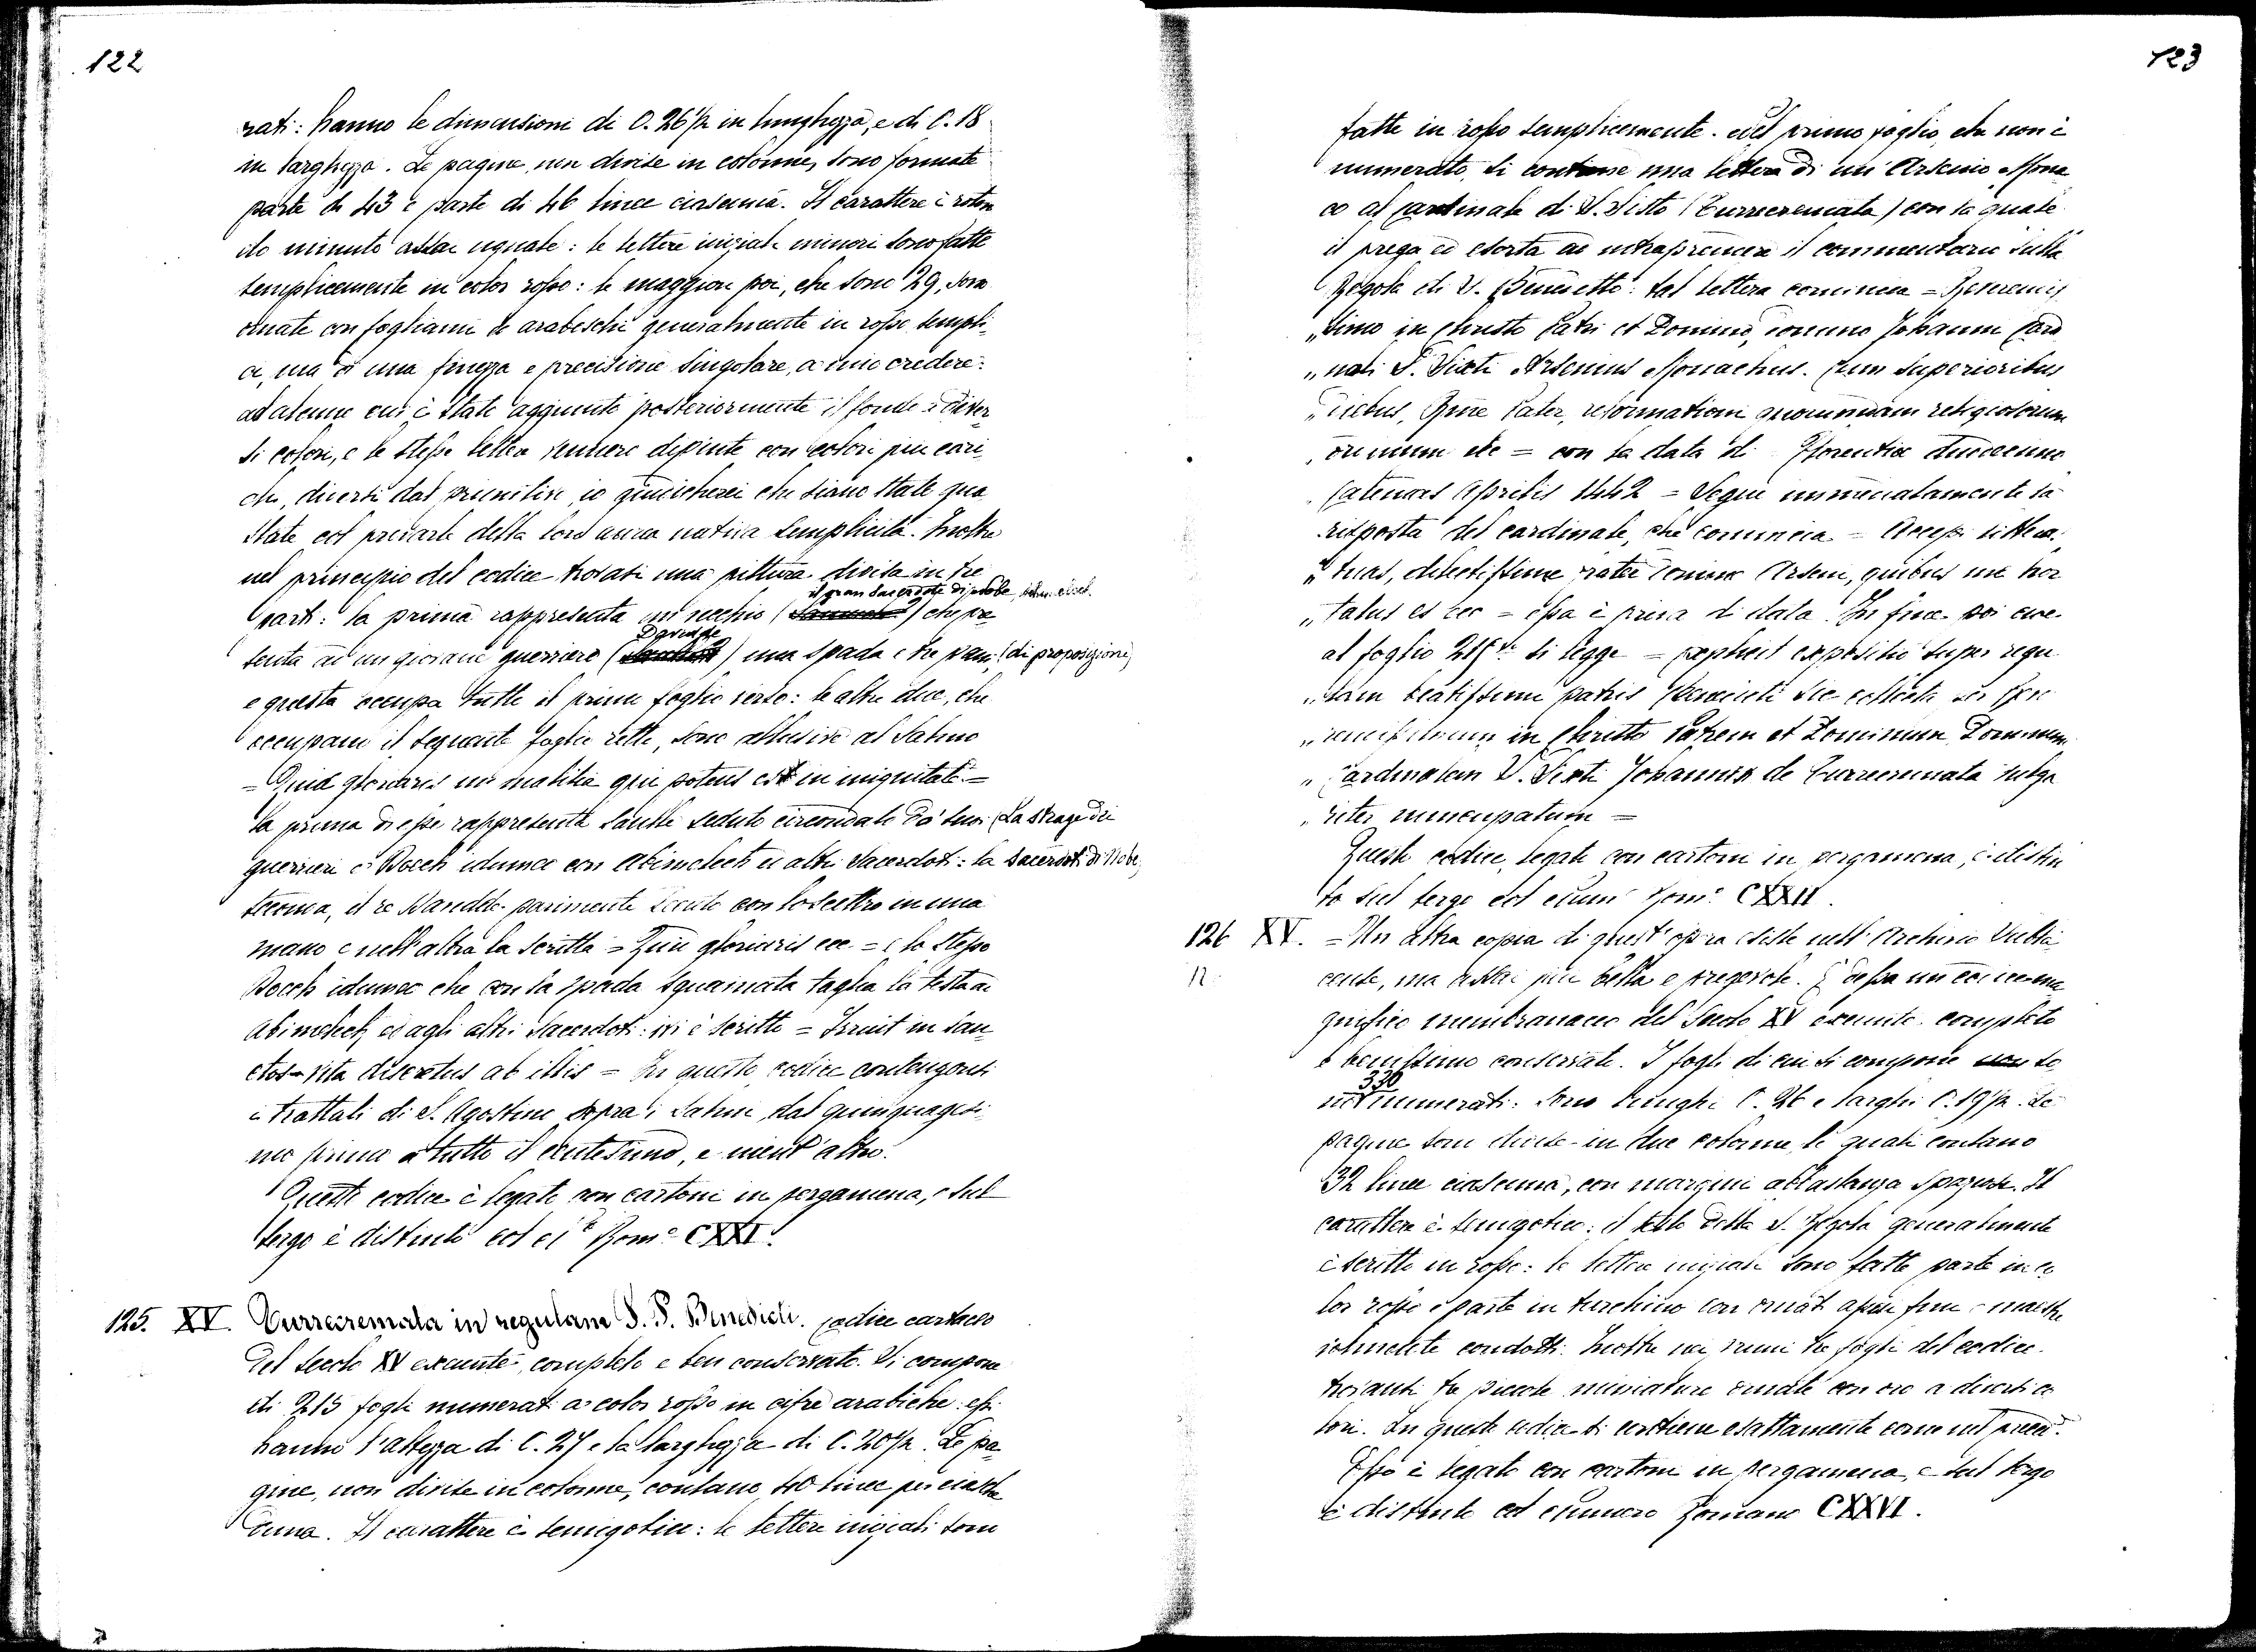 122
rati: hanno le dimensioni di C. 26 1/2 in lunghezza, e di C. 18
in larghezza. Le pagine, non divise in colonne, sono formate
parte di 43 e parte di 46 linee ciascuna. Il carattere è roton
do minuto assai uguale: le lettere iniziali minori sono fatte
semplicemente in color rosso: le maggiori poi, che sono 29, sono
ornate con fogliami ed arabeschi generalmente in rosso sempli
ci, ma di una finezza e precisione singolare, a mio credere:
ad alcune cui è stato aggiunto posteriormente il fondo a diver
si colori, e le stesse lettere vennero dipinte con colori più cari
chi, diversi dai primitivi, io giudicherei che siano state gua
state col privarle della loro aurea nativa semplicità. Inoltre
nel principio del codice trovasi una pittura divisa in tre
il gran Sacerdote di Nobe,
parti: la prima rappresenta un vecchio ( ) che pre
Davidde
senta ad un giovane guerriero ( ) una spada e tre pani, (di proposizione)
e questa occupa tutto il primo foglio verso: le altre due, che
occupano il seguente foglio retto, sono allusive al Salmo
= Quid gloriaris in malitia qui potens es in iniquitate =
la prima di esse rappresenta Saulle seduto circondato da' suoi (La strage dei
guerrieri e Doech idumeo con Abimelech ed altri Sacerdoti: la Sacerdoti di Nobe)
seconda, il re Davidde parimente seduto con lo scettro in una
mano e nell'altra la scritta = Quid gloriaris ecc = e lo stesso
Doech idumeo che con la spada sguainata taglia la testa ad
Abimelech ed agli altri Sacerdoti: ivi è scritto = Irruit in San
ctos ita discretus ab illis = In questo codice contengonsi
i trattati di S. Agostino sopra i Salmi dal quinquagesi
mo primo a tutto il centesimo, e nient'altro.
Questo codice è legato con cartoni in pergamena, e sul
tergo è distinto col No Romo CXXI.
125. XV. Turrecremata in regulam S. P. Benedicti. Codice cartaceo
del secolo XV exeunte, completo e ben conservato. Si compone
di 215 fogli numerati a color rosso in cifre arabiche: essi
hanno l'altezza di C. 27 e la larghezza di C. 20 1/2. Le pa
gine, non divise in colonne, contano 40 linee per ciasche
duna. Il carattere è semigotico: le lettere iniziali sono
123
fatte in rosso semplicemente. Nel primo foglio, che non è
numerato, si contiene una lettera di un Arsenio Mona
co al Cardinale di S. Sisto (Turrecremata) con la quale
il prega ed esorta ad intraprendere il commentario sulla
Regola di S. Benedetto: tal lettera comincia = Reverendis
„simo in Christo Patri et Domino, domino Johanni Cardi
„nali S. Sixti Arsenius Monachus. Cum superioribus
„diebus, Pater, reformationi quorumdam religiosorum
„ etc = con la data di Florentiae
Calendas Aprilis 1442 = Segue immediatamente la
risposta del cardinale, che comincia = Accepi litteras
„tuas, dilectissime frater domine Arseni, quibus me hor
„tatus es ecc = essa è priva di data. In fine poi
al foglio 215 si legge = Explicit expositio super regu
„lam beatissimi patris Benedicti collecta per Reve
„rendissimum in Christo Patrem et Dominum Dominum
„Cardinalem S. Sixti Johannem de Turrecremata vulga
„riter nuncupatum =
Questo codice, legato con cartoni in pergamena, è distin
to sul tergo col num Rom.o CXXII.
126 XV. = Un altra copia di quest'opera esiste nell'Archivio Subla
cense, ma assai più bella e pregevole. È dessa un codice ma
gnifico membranaceo del secolo XV exeunte, completo
e benissimo conservato. I fogli di cui si compone non so
330
no numerati: sono lunghi C. 26 e larghi C. 19 1/2. Le
pagine sono divise in due colonne, le quali contano
32 linee ciascuna, con margini abbastanza spaziosi. Il
carattere è semigotico: il testo della S. Regola generalmente
è scritto in rosso: le lettere iniziali sono fatte parte in co
lor rosso e parte in turchino con ornati assai fini e maestre
volmente condotti. Inoltre nei primi tre fogli del codice
trovansi tre piccole miniature ornate con oro a diversi co
lori. In questo codice si contiene esattamente come nel preced.e
Esso è legato con cartoni in pergamena, e sul tergo
è distinto col numero Romano CXXVI.